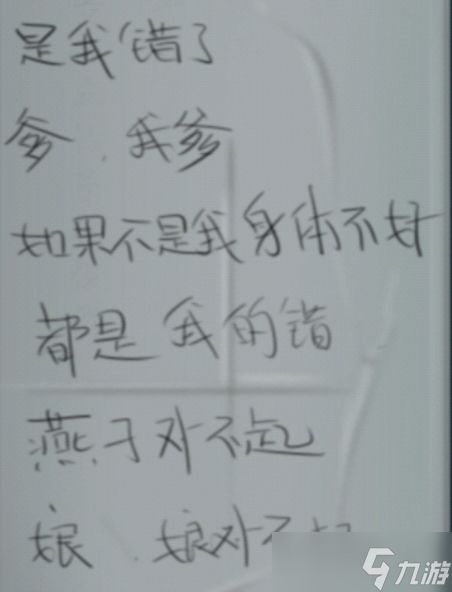 是我错了
爹.我爹
如果不是我身体不好
都是我的错
燕子对不起
娘.娘对不
九游